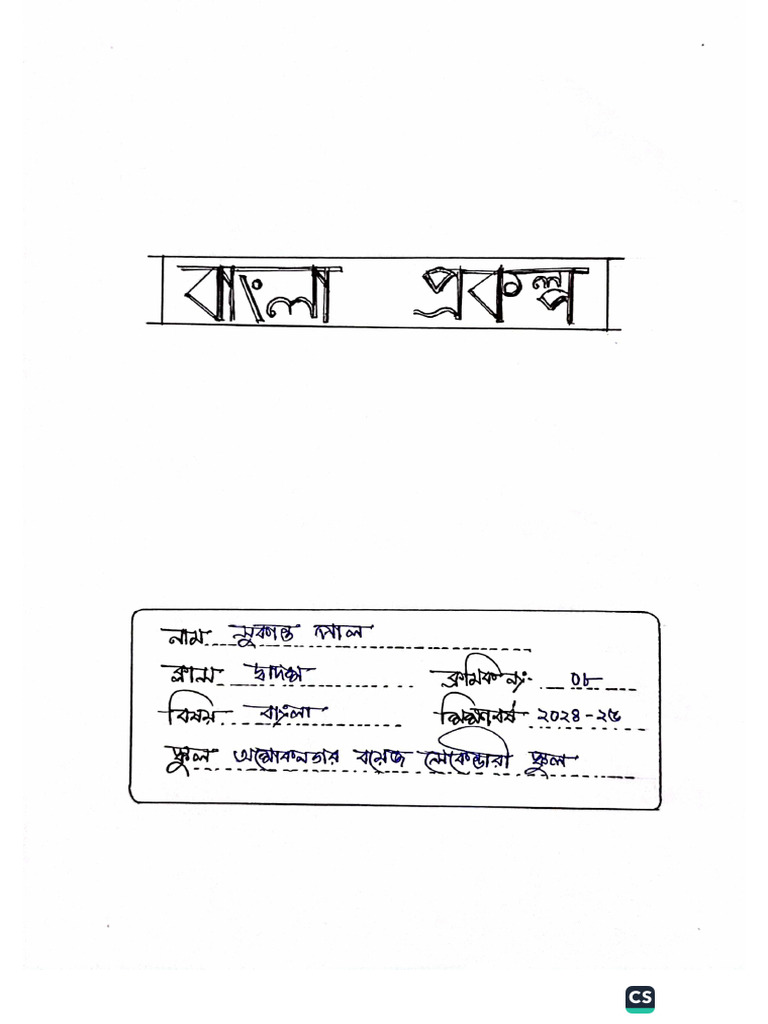 বাংলা প্রকল্প
নাম সুকান্ত পাল
ক্লাস দ্বাদশ ক্রমিক নং:- ০৮
বিষয় বাংলা শিক্ষাবর্ষ ২০২৪-২৫
স্কুল অশোকনগর বয়েজ সেকেন্ডারী স্কুল
CS